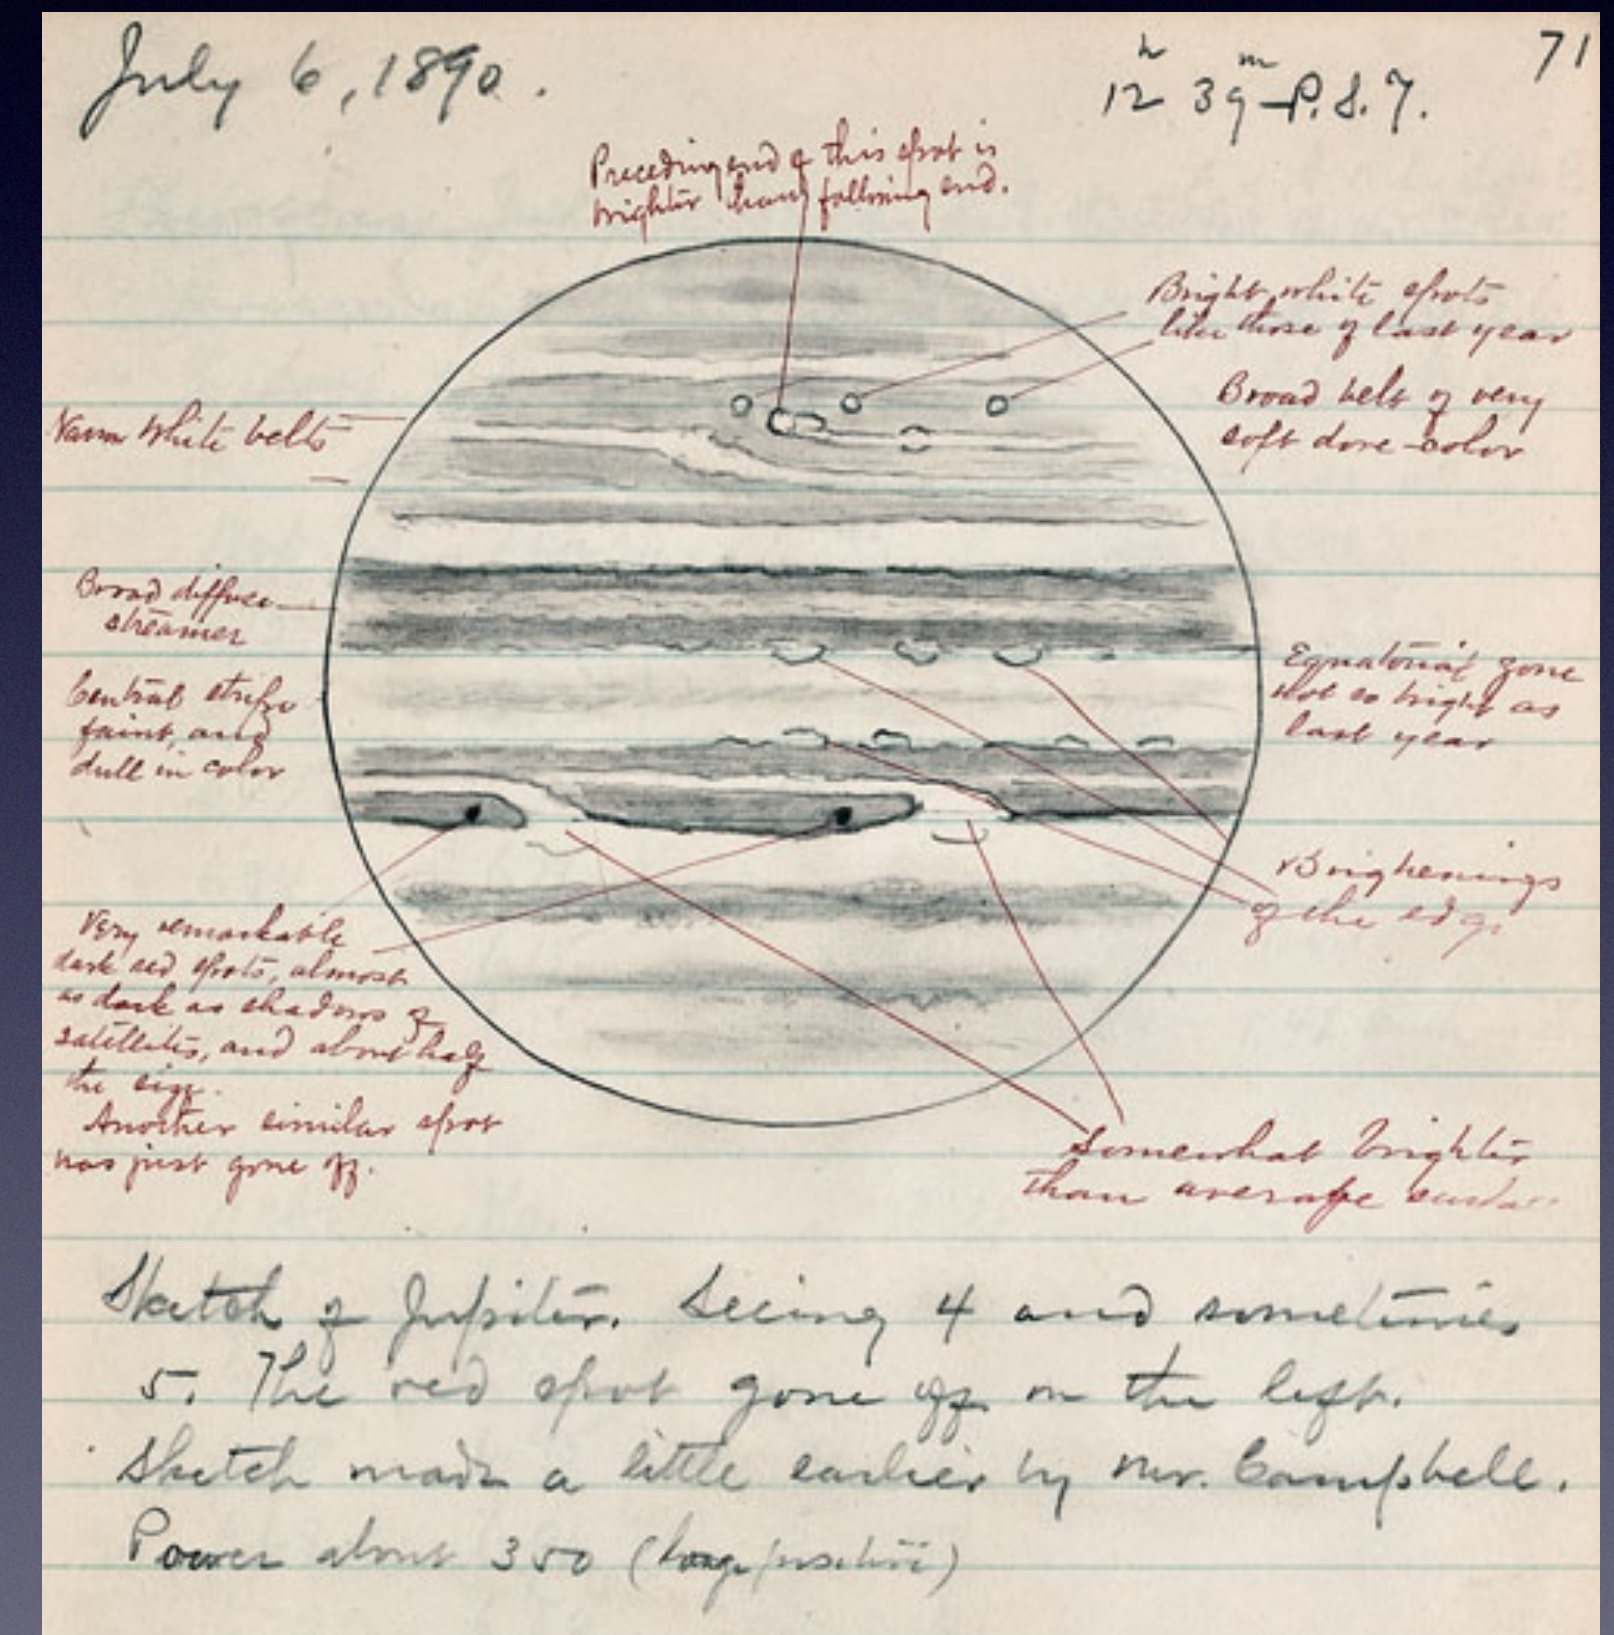 July 6, 1890.
12h 39m P.S.T.
71
Preceding end of this spot is
brighter than following end.
Bright white spots
like those of last year
Broad belt of very
soft dove-color
Narrow white belts
Broad diffuse
streamer
Central stripe
faint, and
dull in color
Equatorial zone
not so bright as
last year
Brightenings
of the edge
Very remarkable
dark red spots, almost
as dark as shadows of
satellites, and about half
the size.
Another similar spot
has just gone off.
Somewhat brighter
than average
Sketch of Jupiter. Seeing 4 and sometimes
5. The red spot gone off on the left.
Sketch made a little earlier by Mr. Campbell.
Power about 350 (large positive)